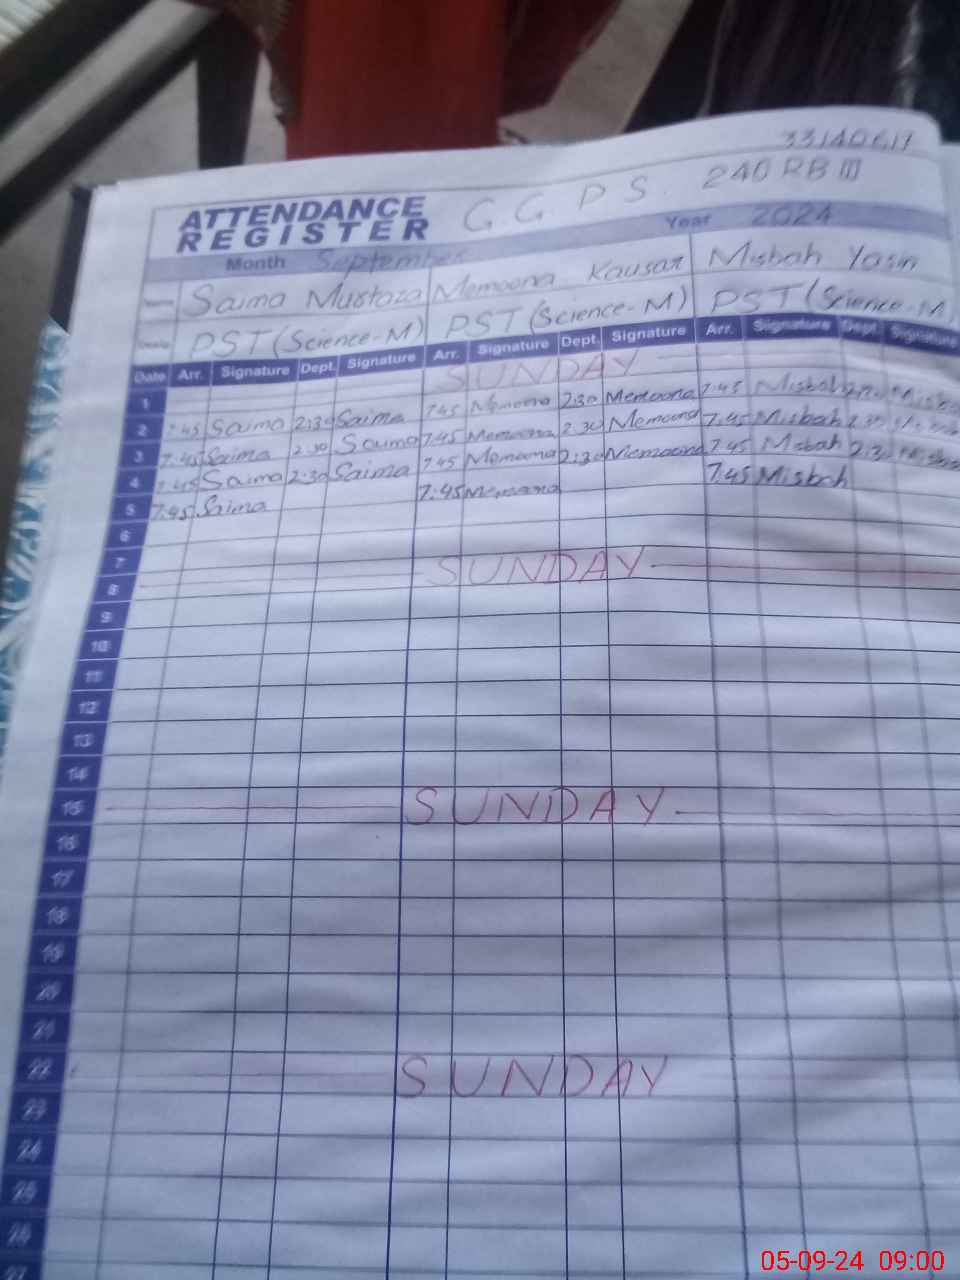 33140617
ATTENDANCE REGISTER G. G. P S. 240 RB III
Month September Year 2024
Name Saima Mustaza Memoona Kausar Misbah Yasin
PST (Science-M) PST (Science-M) PST (Science-M)
Date Arr. Signature Dept. Signature Arr. Signature Dept. Signature Arr. Signature Dept. Signature
1 SUNDAY
2 7:45 Saima 2:30 Saima 7:45 Memoona 2:30 Memoona 7:45 Misbah
3 7:45 Saima 2:30 Saima 7:45 Memoona 2:30 Memoona 7:45 Misbah 2:30
4 7:45 Saima 2:30 Saima 7:45 Memoona 2:30 Memoona 7:45 Misbah 2:30
5 7:45 Saima 7:45 Memoona 7:45 Misbah
6
7
8 SUNDAY
9
10
11
12
13
14
15 SUNDAY
16
17
18
19
20
21
22 SUNDAY
23
24
25
26
27
05-09-24 09:00